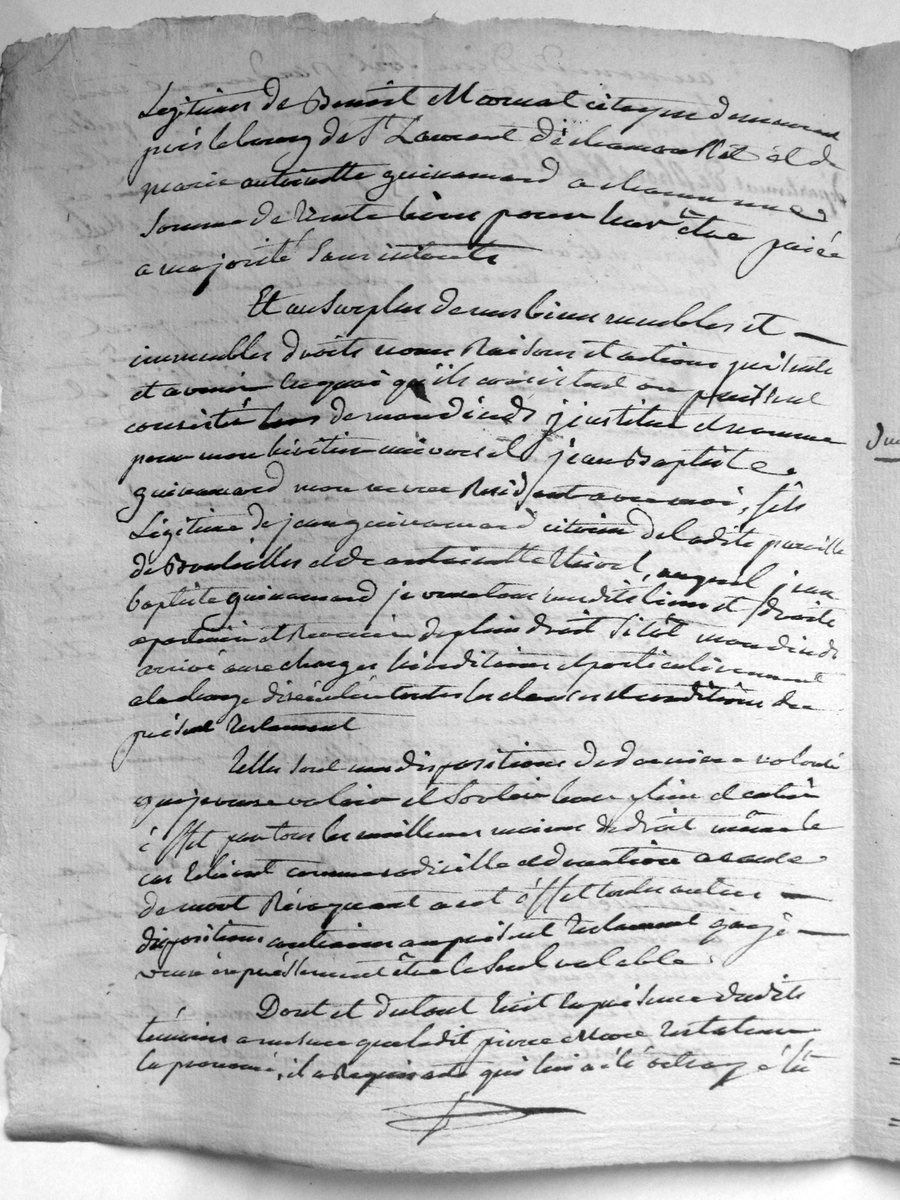 Legitimes de Benoit Mornat citoyen demeurant
près le bourg de St Laurent de chamousset et de
marie antoinette guinamard a chacun une
Somme de trente livres pour leur être paiée
a majorité Sans interets
Et au Surplus de mes biens meubles et
immeubles droits noms Raisons et actions présents
et avenir en quoi qu'ils consistent ou puissent
consister lors de mon décéds j'institue et nomme
pour mon héritier universel jean Baptiste
guinamard mon neveu Residant avec moi, fils
Légitime de jean guinamard citoien de ladite paroisse
de et de antoinette auquel jean
baptiste guinamard je veux tous mesdits biens et droits
apartenir et Revenir de plein droit Sitôt mon décéds
arrivé aux charges héréditaires et particulièrement
a la charge d'exécuter toutes les clauses et conditions du
présent testament
Telles sont mes dispositions de derniere volonté
que je veux valoir et Sortir leur plein et entier
éffet par tous les meilleurs moiens de droit même le
cas échéant comme codicille et donation a cause
de mort Révoquant a cet éffet toutes autres
dispositions contraires au présent testament que je
veux expréssement être le Seul valable.
Dont et du tout lecture en présence desdits
témoins a mesure que ledit pierre More testateur
l'a prononcé, il a Requis acte qui lui a été octroyé